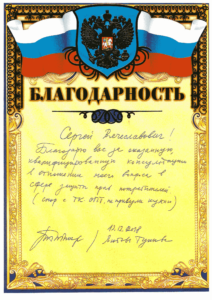 БЛАГОДАРНОСТЬ
Сергей Вячеславович!
Благодарю вас за оказанную
квалифицированную консультацию
в отношении моего вопроса в
сфере защиты прав потребителей
(спор с ТК
12.12.2018